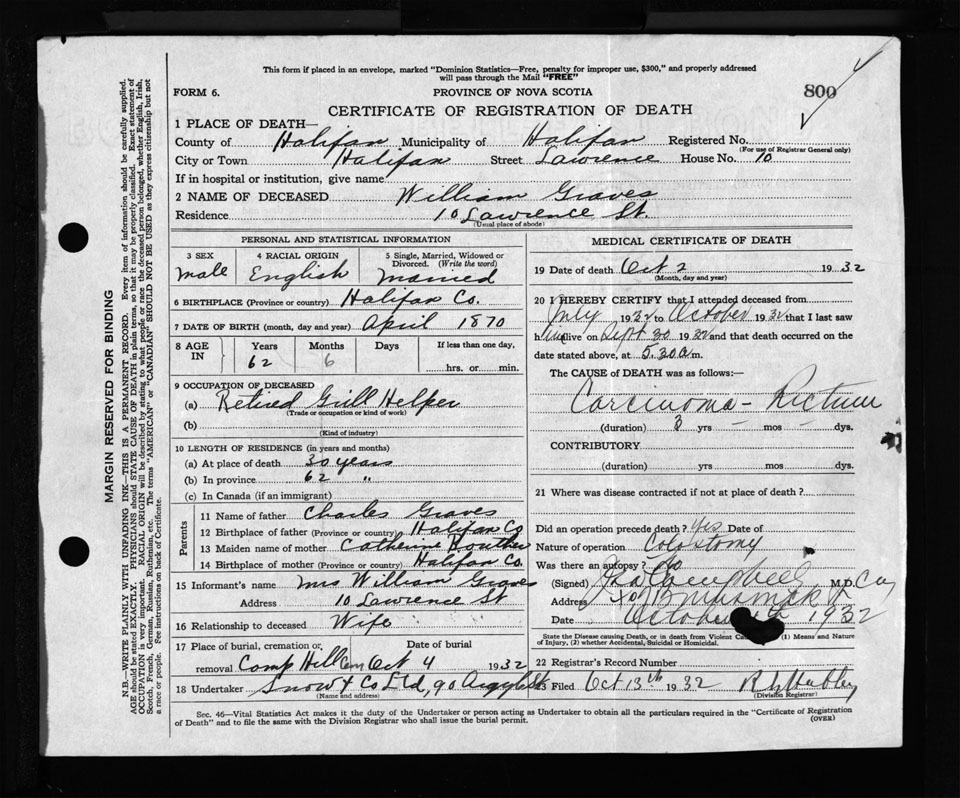 This form if placed in an envelope, marked "Dominion Statistics—Free, penalty for improper use, $300," and properly addressed
will pass through the Mail "FREE"
FORM 6.
PROVINCE OF NOVA SCOTIA
800
CERTIFICATE OF REGISTRATION OF DEATH
1 PLACE OF DEATH—
County of Halifax Municipality of Halifax Registered No.
(For use of Registrar General only)
City or Town Halifax Street Lawrence House No. 10
If in hospital or institution, give name
2 NAME OF DECEASED William Graves
Residence 10 Lawrence St.
(Usual place of abode)
PERSONAL AND STATISTICAL INFORMATION
3 SEX
male
4 RACIAL ORIGIN
English
5 Single, Married, Widowed or
Divorced. (Write the word)
Married
6 BIRTHPLACE (Province or country) Halifax Co.
7 DATE OF BIRTH (month, day and year) April 1870
8 AGE IN
Years Months Days If less than one day,
62 6
hrs. or min.
9 OCCUPATION OF DECEASED
(a) Retired Grill Helper
(Trade or occupation or kind of work)
(b)
(Kind of industry)
10 LENGTH OF RESIDENCE (in years and months)
(a) At place of death 30 years
(b) In province 62 "
(c) In Canada (if an immigrant)
Parents
11 Name of father Charles Graves
12 Birthplace of father (Province or country) Halifax Co
13 Maiden name of mother Catherine
14 Birthplace of mother (Province or country) Halifax Co.
15 Informant's name Mrs William Graves
Address 10 Lawrence St
16 Relationship to deceased Wife
17 Place of burial, cremation or Date of burial
removal Camp Hill Cem Oct 4 1932
18 Undertaker Snow & Co Ltd, 90 Argyle St
(Name and address)
MEDICAL CERTIFICATE OF DEATH
19 Date of death Oct 2 1932
(Month, day and year)
20 I HEREBY CERTIFY that I attended deceased from
July 1932 to October 1932 that I last saw
him alive on Sept 30 1932 and that death occurred on the
date stated above, at 5.30 a m.
The CAUSE OF DEATH was as follows:
Carcinoma – Rectum
(duration) 3 yrs – mos – dys.
CONTRIBUTORY
(duration) yrs mos dys.
21 Where was disease contracted if not at place of death?
Did an operation precede death? Yes Date of
Nature of operation Colostomy
Was there an autopsy? No
(Signed) Campbell M.D.
Address
Date October 1932
State the Disease causing Death, or in death from Violent (1) Means and Nature
of Injury, (2) whether Accidental, Suicidal or Homicidal.
22 Registrar's Record Number
23 Filed Oct 13th 1932
(Division Registrar)
Sec. 46—Vital Statistics Act makes it the duty of the Undertaker or person acting as Undertaker to obtain all the particulars required in the "Certificate of Registration
of Death" and to file the same with the Division Registrar who shall issue the burial permit.
(OVER)
MARGIN RESERVED FOR BINDING
N.B.—WRITE PLAINLY WITH UNFADING INK—THIS IS A PERMANENT RECORD. Every item of information should be carefully supplied.
AGE should be stated EXACTLY. PHYSICIANS should STATE CAUSE OF DEATH in plain terms, so that it may be properly classified. Exact statement of
OCCUPATION is very important. RACIAL ORIGIN will be described by stating to what people or race the deceased person belonged, whether English, Irish,
Scotch, French, German, Russian, Ruthenian, etc. The terms "AMERICAN" or "CANADIAN" SHOULD NOT BE USED as they express citizenship but not
a race or people. See instructions on back of Certificate.